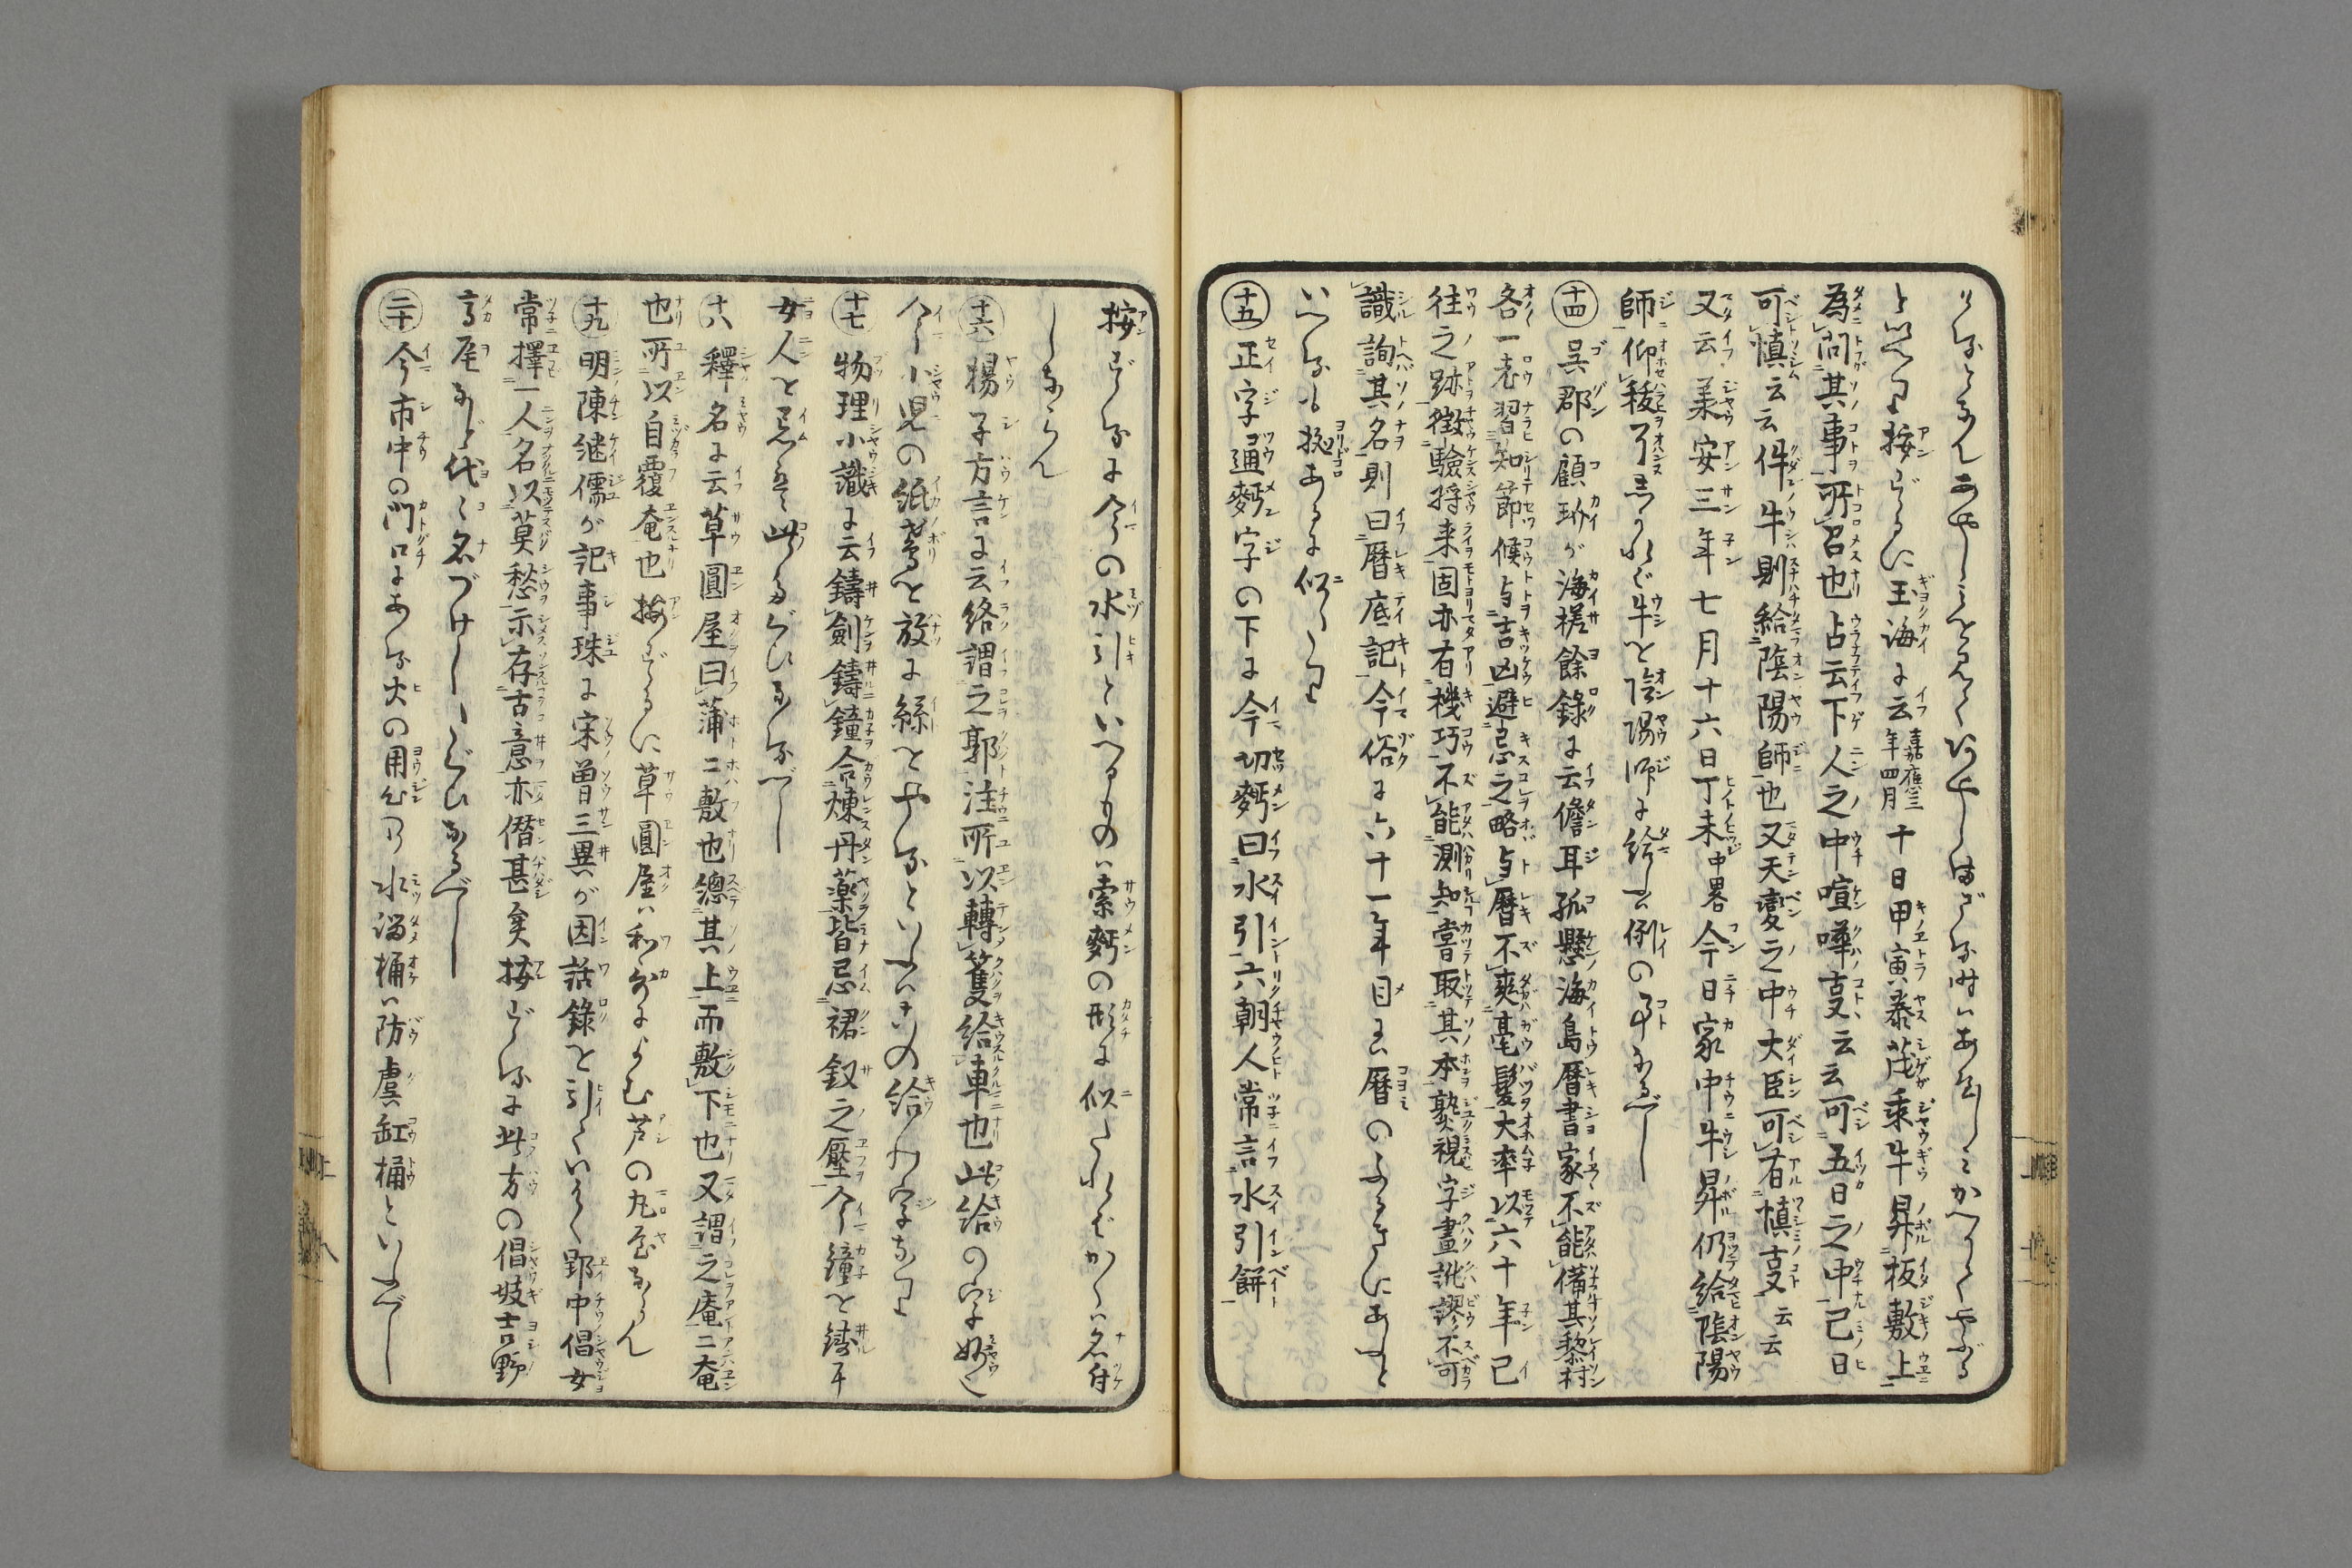 と以へり按ずるに玉海に云嘉應三年四月十日甲寅泰茂乘牛昇板敷上
為問其事所召也占云下人之中喧嘩㕝云云可五日之中己日
可慎云云件牛則給陰陽師也又天變之中大臣可有慎㕝云云
又云羕安三年七月十六日丁未中畧今日家中牛昇仍給陰陽
師仰秡了しかれバ牛を陰陽師に給しハ例の事なるべし
十四 呉郡の顧玠が海槎餘錄に云儋耳孤懸海島暦書家不能備其黎村
各一老習知節候与吉凶避忌之略与暦不爽毫髮大率以六十年已
往之跡徴驗将来固亦有機巧不能測知嘗取其本熟視字畫訛謬不可
識詢其名則曰暦底記今俗に六十一年目ハ暦のふるきにあふと
いへるも拠あるに似たり
十五 正字通麪字の下に今切麪曰水引六朝人常言水引餅
按ずるに今の水引といへるものハ索麪の形に似たれバかくハ名付
しならん
十六 揚子方言に云絡謂之郭注所以轉籰給車也此給の字妙也
今小児の紙鳶を放に絲をやるといふハこの給の字なり
十七 物理小識に云鑄劍鑄鐘合煉丹薬皆忌裙釵之壓今鐘を鑄に
女人を忌も此るゐなるべし
十八 釋名に云草圓屋曰蒲ニ敷也總其上而敷下也又謂之庵ニ奄
也所以自覆奄也按ずるに草圓屋ハ和哥によむ芦の丸屋ならん
十九 明陳継儒が記事珠に宋曾三異が因話錄を引ていはく郢中倡女
常擇一人名以莫愁示存古意亦僭甚矣按ずるに此方の倡妓吉野
高尾など代々名づけしたぐひなるべし
二十 今市中の門口にある火の用心の水溜桶ハ防虞缸桶といふべし